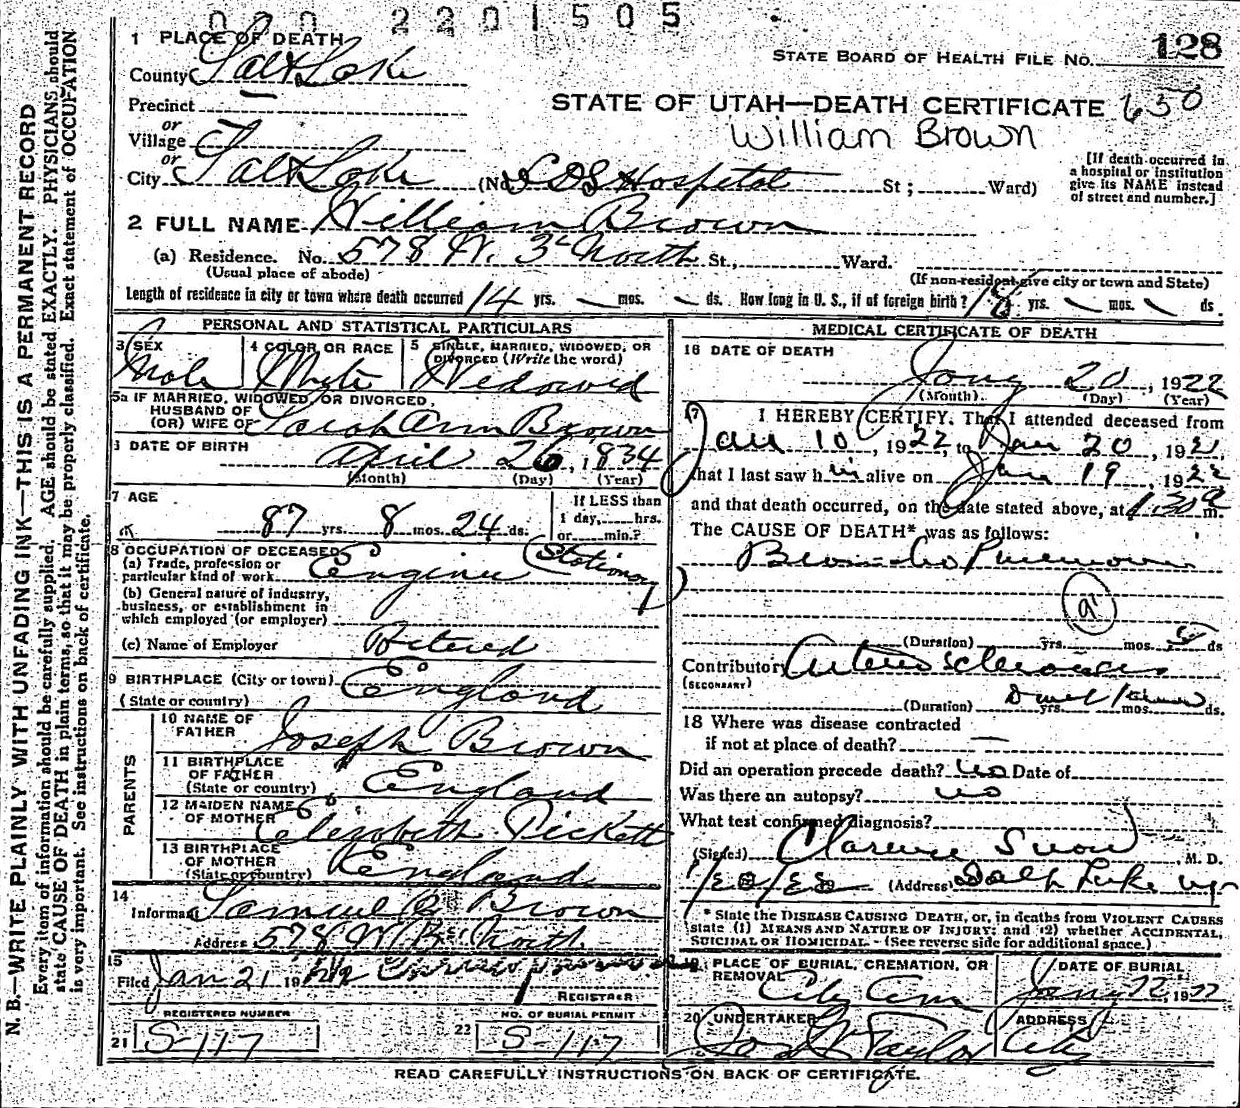 2201505
1 PLACE OF DEATH
STATE BOARD OF HEALTH FILE NO. 128
County Salt Lake
STATE OF UTAH—DEATH CERTIFICATE 650
Precinct
William Brown
or
Village
or
City Salt Lake (No. LDS Hospital St; Ward)
[If death occurred in
a hospital or institution
give its NAME instead
of street and number.]
2 FULL NAME William Brown
(a) Residence. No. 578 W. 3rd North St., Ward.
(Usual place of abode)
(If non-resident give city or town and State)
Length of residence in city or town where death occurred 14 yrs. — mos. — ds. How long in U. S., if of foreign birth? 18 yrs. — mos. — ds.
PERSONAL AND STATISTICAL PARTICULARS
3 SEX
Male
4 COLOR OR RACE
White
5 SINGLE, MARRIED, WIDOWED, OR
DIVORCED (Write the word)
Widowed
5a IF MARRIED, WIDOWED, OR DIVORCED,
HUSBAND OF
(OR) WIFE OF Sarah Ann Brown
6 DATE OF BIRTH
April 26, 1834
(Month) (Day) (Year)
7 AGE
87 yrs. 8 mos. 24 ds.
If LESS than
1 day, hrs.
or min.?
8 OCCUPATION OF DECEASED
(a) Trade, profession or
particular kind of work Engineer (Stationary)
(b) General nature of industry,
business, or establishment in
which employed (or employer)
(c) Name of Employer Retired
9 BIRTHPLACE (City or town)
(State or country) England
PARENTS
10 NAME OF
FATHER Joseph Brown
11 BIRTHPLACE
OF FATHER
(State or country) England
12 MAIDEN NAME
OF MOTHER Elizabeth Pickett
13 BIRTHPLACE
OF MOTHER
(State or country) England
14
Informant Samuel B Brown
Address 578 W 3rd North
15
Filed Jan 21 19
REGISTRAR
REGISTERED NUMBER
21 S-117
NO. OF BURIAL PERMIT
22 S-117
MEDICAL CERTIFICATE OF DEATH
16 DATE OF DEATH
Jany 20, 1922
(Month). (Day) (Year)
17 I HEREBY CERTIFY. That I attended deceased from
Jan 10, 1922, to Jan 20, 192
that I last saw him alive on Jan 19 1922
and that death occurred, on the date stated above, at 1.30 a m.
The CAUSE OF DEATH* was as follows:
Broncho Pneumonia
91
(Duration) yrs. mos. 5 ds
Contributory Arterio Sclerosis
(SECONDARY)
(Duration) yrs. mos. ds.
18 Where was disease contracted
if not at place of death? —
Did an operation precede death? No Date of
Was there an autopsy? no
What test confirmed diagnosis?
(Signed) Clarence Snow M. D.
1/20/22 (Address) Salt Lake
* State the DISEASE CAUSING DEATH, or, in deaths from VIOLENT CAUSES
state (1) MEANS AND NATURE OF INJURY; and (2) whether ACCIDENTAL,
SUICIDAL OR HOMICIDAL. (See reverse side for additional space.)
19 PLACE OF BURIAL, CREMATION, OR
REMOVAL
City Cem
DATE OF BURIAL
Jany 22, 1922
20 UNDERTAKER
Jos Wm Taylor
ADDRESS
City
READ CAREFULLY INSTRUCTIONS ON BACK OF CERTIFICATE.
N. B.—WRITE PLAINLY WITH UNFADING INK—THIS IS A PERMANENT RECORD
Every item of information should be carefully supplied. AGE should be stated EXACTLY. PHYSICIANS should
state CAUSE OF DEATH in plain terms, so that it may be properly classified. Exact statement of OCCUPATION
is very important. See instructions on back of certificate.